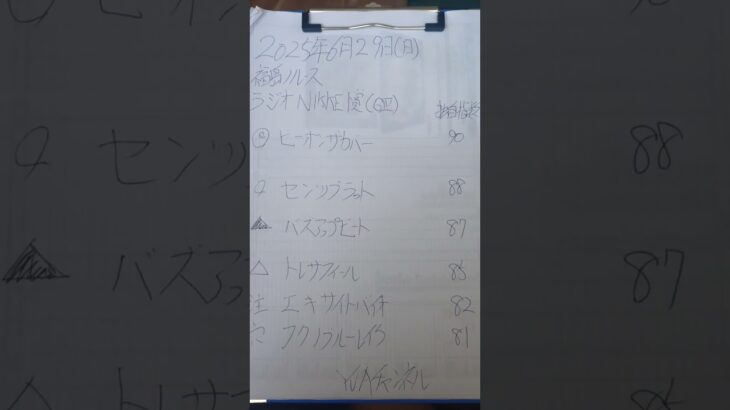 2025年6月29日(日)
福島11レース
ラジオNIKKEI賞(GⅢ) 指数
◎ ビーオンザカバー 90
○ センツブラッド 88
▲ バズアップビート 87
△ トレサフィール 85
注 エキサイトバイオ 82
穴 フクノブルーレイク 81
YUAチャンネル